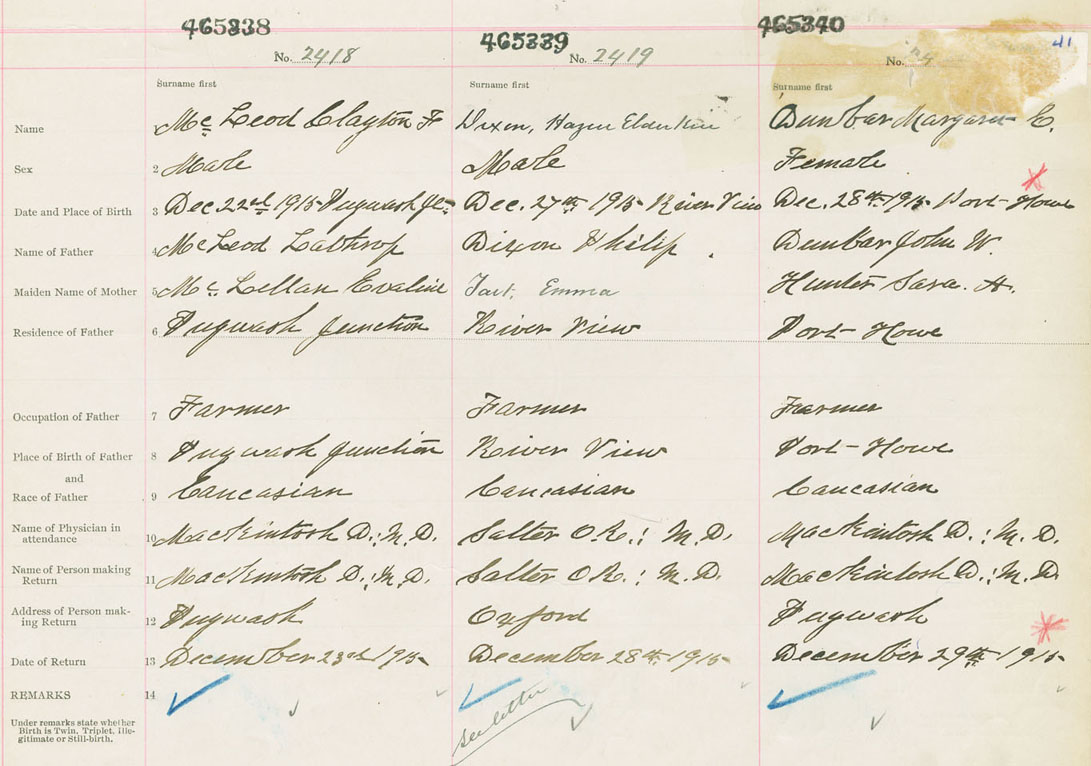 465338 465339 465340
41
No. 2418 No. 2419 No.
Surname first Surname first Surname first
Name Mc Leod Clayton F Dixon, Hazen Elderkin Dunbar Margaret E.
Sex 2 Male Male Female
Date and Place of Birth 3 Dec 22nd 1915 Pugwash Jc Dec. 27th 1915 River View Dec. 28th 1915 Port Howe
Name of Father 4 McLeod Lathrop Dixon Philip Dunbar John W.
Maiden Name of Mother 5 Mc Lellan Evaline Tait, Emma Hunter Sara. H.
Residence of Father 6 Pugwash Junction River View Port Howe
Occupation of Father 7 Farmer Farmer Farmer
Place of Birth of Father 8 Pugwash Junction River View Port-Howe
and
Race of Father 9 Caucasian Caucasian Caucasian
Name of Physician in
attendance 10 MacKintosh D.; M.D. Salter O.R.; M.D. MacKintosh D.; M.D.
Name of Person making
Return 11 MacKintosh D.; M.D. Salter O.R.; M.D. MacKintosh D.; M.D.
Address of Person mak-
ing Return 12 Pugwash Oxford Pugwash
Date of Return 13 December 23rd 1915 December 28th 1915 December 29th 1915
REMARKS 14
see letter
Under remarks state whether
Birth is Twin, Triplet, Ille-
gitimate or Still-birth.